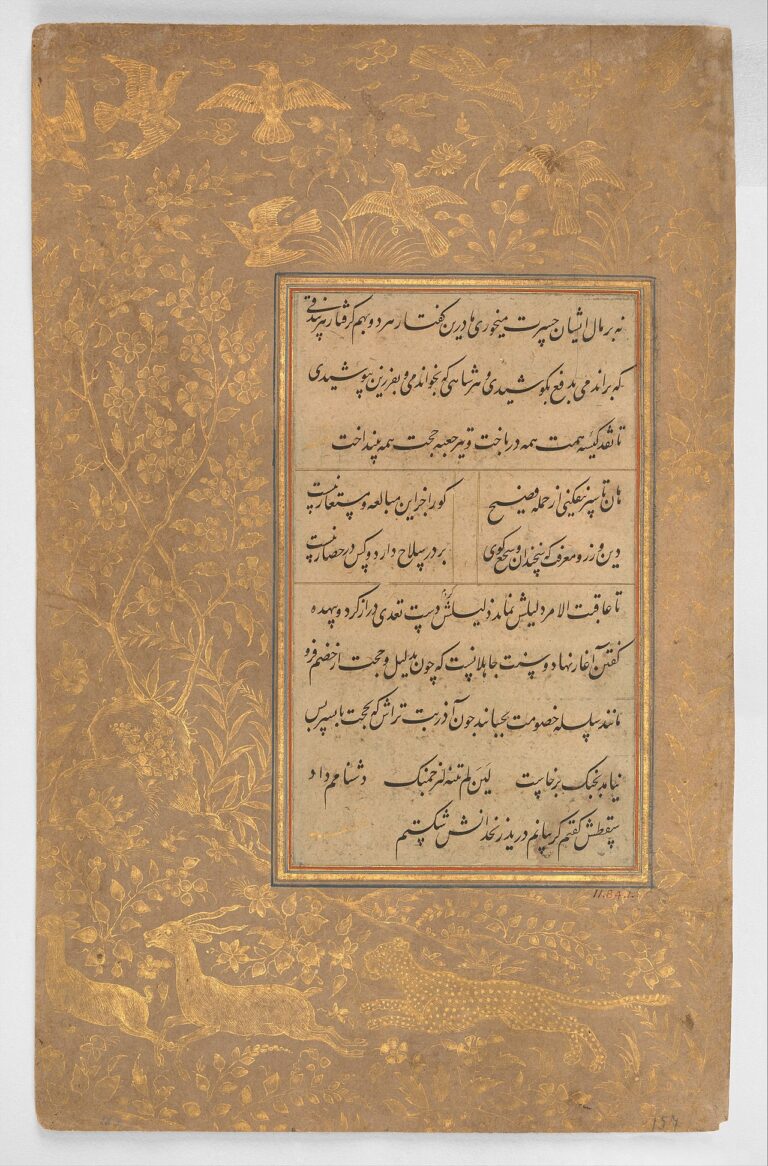 نه بر مال ایشان حسرت میخوری ما درین گفتار هر دو بهم گرفتار هر بیدقی
که براندمی بدفع بکوشیدی و هر شاهی که بخواندمی و بفرزین بپوشیدی
تا نقد کیسه همت همه در باخت و تیر جعبه حجت همه بینداخت
هان تا سپر نیفکنی از حمله فصیح کو را جز این مبالغه و مستعار نیست
دین ورز و معرفت که سخندان و سجع گوی بر در سلاح دارد و کس در حصار نیست
تا عاقبت الامر دلیلش نماند ذلیلش کردم دست تعدی دراز کرد و بیهده
گفتن آغاز نهاد و سنت جاهلانست که چون بدلیل و حجت از خصم فرو
مانند سلسله خصومت بجنبانند چون آذر بت تراش که بحجت با پسر بس
نیامد بجنگ برخاست لئن لم تنته لارجمنک دشنامم داد
سقطش گفتم گریبانم درید زنخدانش شکستم
11.84.1
157